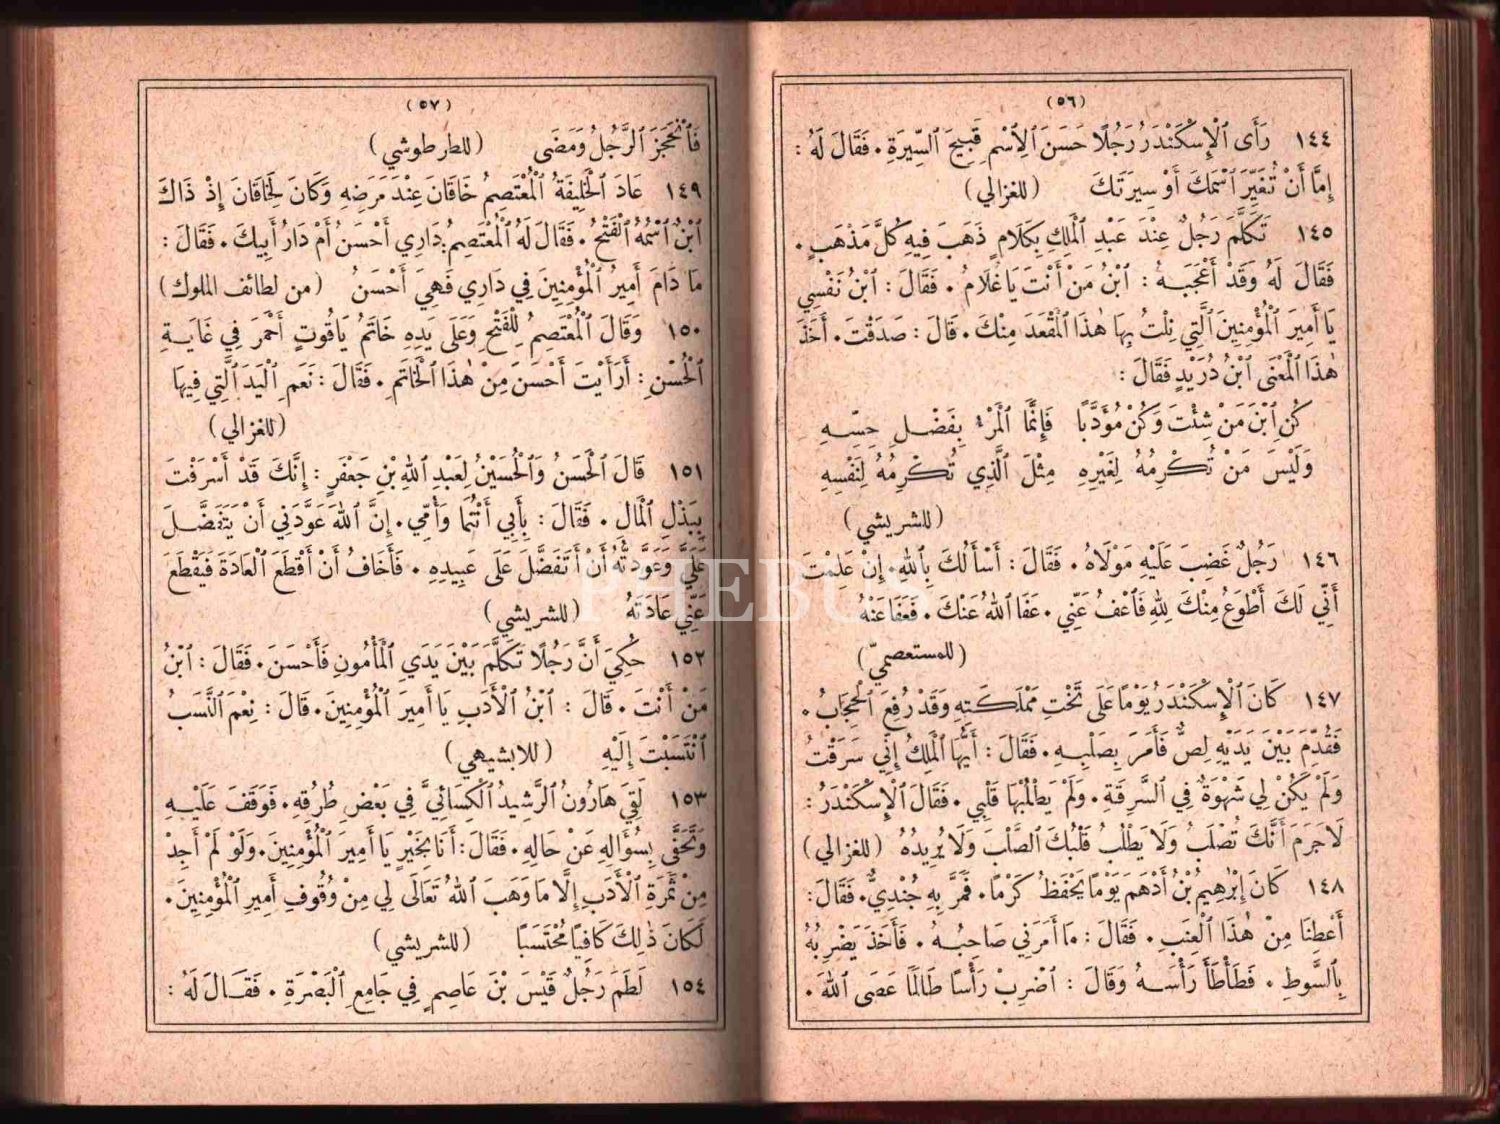 (٥٦)
١٤٤ رَأَى ٱلْإِسْكَنْدَرُ رَجُلًا حَسَنَ ٱلِٱسْمِ قَبِيحَ ٱلسِّيرَةِ . فَقَالَ لَهُ :
إِمَّا أَنْ تُغَيِّرَ ٱسْمَكَ أَوْ سِيرَتَكَ (للغزالي)
١٤٥ تَكَلَّمَ رَجُلٌ عِنْدَ عَبْدِ ٱلْمَلِكِ بِكَلَامٍ ذَهَبَ فِيهِ كُلَّ مَذْهَبٍ .
فَقَالَ لَهُ وَقَدْ أَعْجَبَهُ : ٱبْنُ مَنْ أَنْتَ يَا غُلَامُ . فَقَالَ : ٱبْنُ نَفْسِي
يَا أَمِيرَ ٱلْمُؤْمِنِينَ ٱلَّتِي نِلْتُ بِهَا هٰذَا ٱلْمَقْعَدَ مِنْكَ . قَالَ : صَدَقْتَ . أَخَذَ
هٰذَا ٱلْمَعْنَى ٱبْنُ دُرَيْدٍ فَقَالَ :
كُنِ ٱبْنَ مَنْ شِئْتَ وَكُنْ مُؤَدَّبًا فَإِنَّمَا ٱلْمَرْءُ بِفَضْلِ حِسِّهِ
وَلَيْسَ مَنْ تُكْرِمُهُ لِغَيْرِهِ مِثْلَ ٱلَّذِي تُكْرِمُهُ لِنَفْسِهِ
(للشريشي)
١٤٦ رَجُلٌ غَضِبَ عَلَيْهِ مَوْلَاهُ . فَقَالَ : أَسْأَلُكَ بِٱللهِ . إِنْ عَلِمْتَ
أَنِّي لَكَ أَطْوَعُ مِنْكَ لِلهِ فَٱعْفُ عَنِّي . عَفَا ٱللهُ عَنْكَ . فَعَفَا عَنْهُ
(للمستعصميّ)
١٤٧ كَانَ ٱلْإِسْكَنْدَرُ يَوْمًا عَلَى تَخْتِ مَمْلَكَتِهِ وَقَدْ رُفِعَ ٱلْحِجَابُ .
فَقُدِّمَ بَيْنَ يَدَيْهِ لِصٌّ فَأَمَرَ بِصَلْبِهِ . فَقَالَ : أَيُّهَا ٱلْمَلِكُ إِنِّي سَرَقْتُ
وَلَمْ يَكُنْ لِي شَهْوَةٌ فِي ٱلسَّرِقَةِ . وَلَمْ يَطْلُبْهَا قَلْبِي . فَقَالَ ٱلْإِسْكَنْدَرُ :
لَا جَرَمَ أَنَّكَ تُصْلَبُ وَلَا يَطْلُبُ قَلْبُكَ ٱلصَّلْبَ وَلَا يُرِيدُهُ (للغزالي)
١٤٨ كَانَ إِبْرٰهِيمُ بْنُ أَدْهَمَ يَوْمًا يَحْفَظُ كَرْمًا . فَمَرَّ بِهِ جُنْدِيٌّ . فَقَالَ :
أَعْطِنَا مِنْ هٰذَا ٱلْعِنَبِ . فَقَالَ : مَا أَمَرَنِي صَاحِبُهُ . فَأَخَذَ يَضْرِبُهُ
بِٱلسَّوْطِ . فَطَأْطَأَ رَأْسَهُ وَقَالَ : ٱضْرِبْ رَأْسًا طَالَمَا عَصَى ٱللهَ .
(٥٧)
فَٱنْحَجَزَ ٱلرَّجُلُ وَمَضَى (للطرطوشي)
١٤٩ عَادَ ٱلْخَلِيفَةُ ٱلْمُعْتَصِمُ خَاقَانَ عِنْدَ مَرَضِهِ وَكَانَ لِخَاقَانَ إِذْ ذَاكَ
ٱبْنٌ ٱسْمُهُ ٱلْفَتْحُ . فَقَالَ لَهُ ٱلْمُعْتَصِمُ : دَارِي أَحْسَنُ أَمْ دَارُ أَبِيكَ . فَقَالَ :
مَا دَامَ أَمِيرُ ٱلْمُؤْمِنِينَ فِي دَارِي فَهِيَ أَحْسَنُ (من لطائف الملوك)
١٥٠ وَقَالَ ٱلْمُعْتَصِمُ لِلْفَتْحِ وَعَلَى يَدِهِ خَاتَمُ يَاقُوتٍ أَحْمَرَ فِي غَايَةِ
ٱلْحُسْنِ : أَرَأَيْتَ أَحْسَنَ مِنْ هٰذَا ٱلْخَاتَمِ . فَقَالَ : نَعَمِ ٱلْيَدَ ٱلَّتِي فِيهَا
(للغزالي)
١٥١ قَالَ ٱلْحَسَنُ وَٱلْحُسَيْنُ لِعَبْدِ ٱللهِ بْنِ جَعْفَرٍ : إِنَّكَ قَدْ أَسْرَفْتَ
بِبَذْلِ ٱلْمَالِ . فَقَالَ : بِأَبِي أَنْتُمَا وَأُمِّي . إِنَّ ٱللهَ عَوَّدَنِي أَنْ يَتَفَضَّلَ
عَلَيَّ وَعَوَّدتُّهُ أَنْ أَتَفَضَّلَ عَلَى عَبِيدِهِ . فَأَخَافُ أَنْ أَقْطَعَ ٱلْعَادَةَ فَيَقْطَعَ
عَنِّي عَادَتَهُ (للشريشي)
١٥٢ حُكِيَ أَنَّ رَجُلًا تَكَلَّمَ بَيْنَ يَدَيِ ٱلْمَأْمُونِ فَأَحْسَنَ . فَقَالَ : ٱبْنُ
مَنْ أَنْتَ . قَالَ : ٱبْنُ ٱلْأَدَبِ يَا أَمِيرَ ٱلْمُؤْمِنِينَ . قَالَ : نِعْمَ ٱلنَّسَبُ
ٱنْتَسَبْتَ إِلَيْهِ (للابشيهي)
١٥٣ لَقِيَ هَارُونُ ٱلرَّشِيدُ ٱلْكِسَائِيَّ فِي بَعْضِ طُرُقِهِ . فَوَقَفَ عَلَيْهِ
وَتَحَفَّى بِسُؤَالِهِ عَنْ حَالِهِ . فَقَالَ : أَنَا بِخَيْرٍ يَا أَمِيرَ ٱلْمُؤْمِنِينَ . وَلَوْ لَمْ أَجِدْ
مِنْ ثَمَرَةِ ٱلْأَدَبِ إِلَّا مَا وَهَبَ ٱللهُ تَعَالَى لِي مِنْ وُقُوفِ أَمِيرِ ٱلْمُؤْمِنِينَ .
لَكَانَ ذٰلِكَ كَافِيًا مُحْتَسَبًا (للشريشي)
١٥٤ لَطَمَ رَجُلٌ قَيْسَ بْنَ عَاصِمٍ فِي جَامِعِ ٱلْبَصْرَةِ . فَقَالَ لَهُ :
PHEBUS